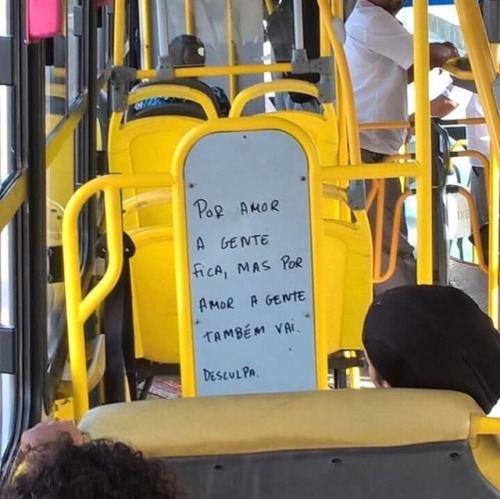 POR AMOR
A GENTE
FICA, MAS POR
AMOR A GENTE
TAMBÉM VAI.
DESCULPA.